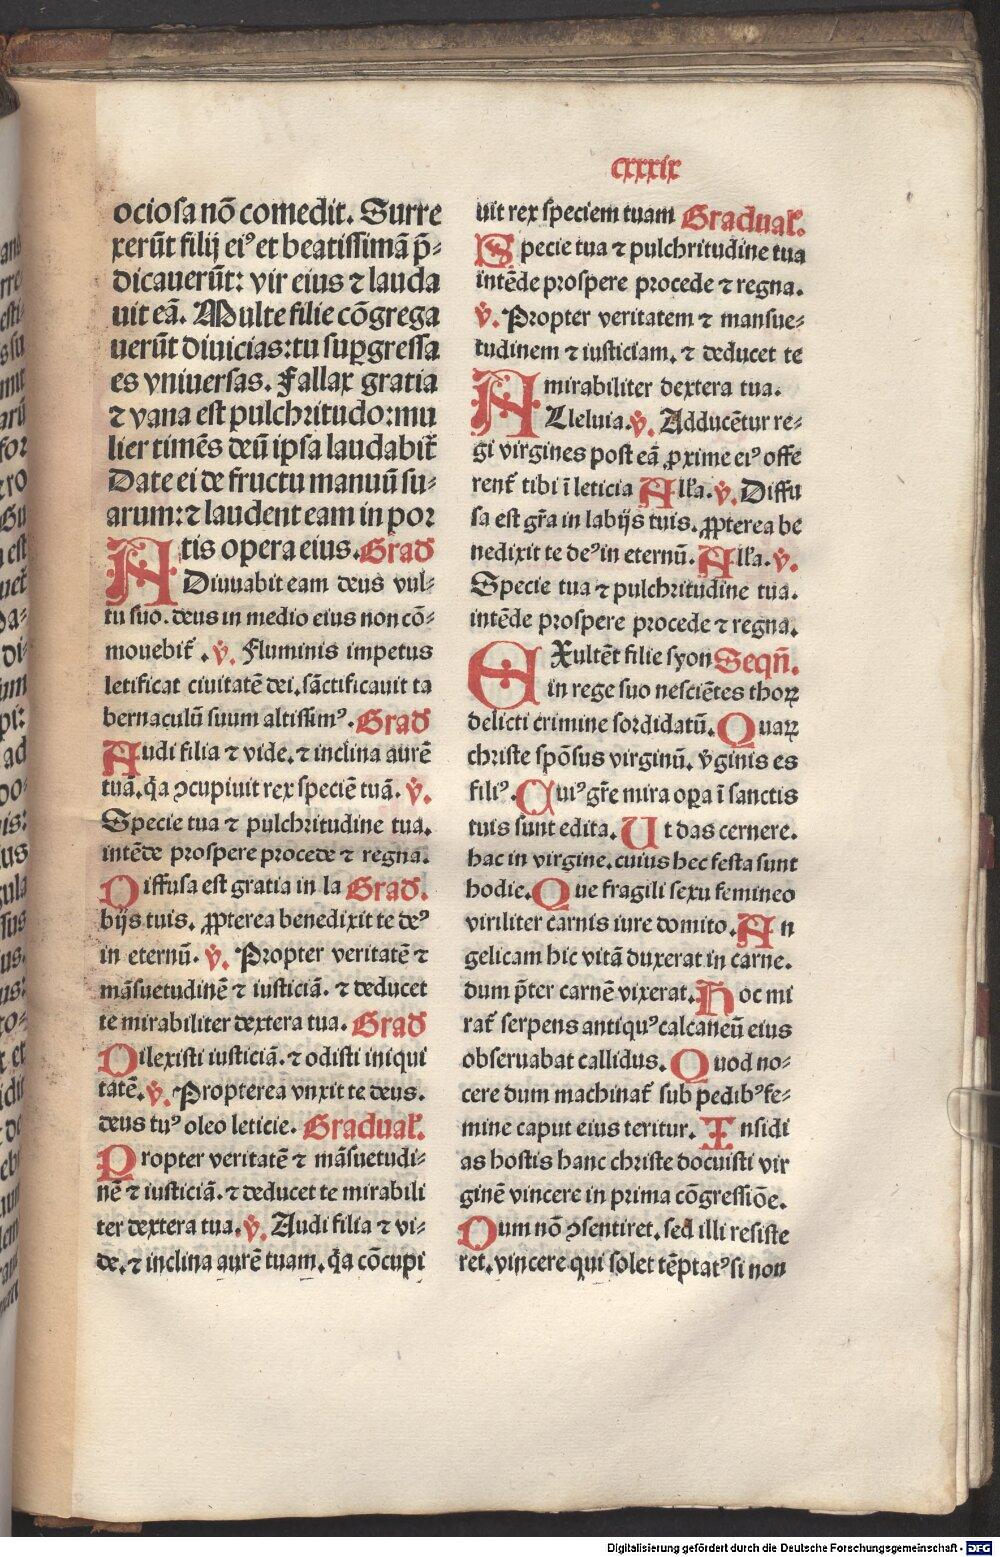 cxxxix
ociosa nō comedit. Surre
xerūt filij eiꝰ et beatissimā p̄-
dicauerūt: vir eius ⁊ lauda
uit eā. Multe filie cōgrega
uerūt diuicias: tu suꝑgressa
es vniuersas. Fallax gratia
⁊ vana est pulchritudo: mu
lier timēs deū ipsa laudabit᷑
Date ei de fructu manuū su-
arum: ⁊ laudent eam in por
tis opera eius. Grad
ADiuuabit eam deus vul-
tu suo. deus in medio eius non cō-
mouebit᷑. ℣. Fluminis impetus
letificat ciuitatē dei. sāctificauit ta
bernaculū suum altissimꝰ. Grad
Audi filia ⁊ vide. ⁊ inclina aurē
tuā. q̇a ꝯcupiuit rex speciē tuā. ℣.
Specie tua ⁊ pulchritudine tua.
intēde prospere procede ⁊ regna.
Diffusa est gratia in la Grad.
bijs tuis. ꝓpterea benedixit te deꝰ
in eternū. ℣. Propter veritatē ⁊
māsuetudinē ⁊ iusticiā. ⁊ deducet
te mirabiliter dextera tua. Grad
Dilexisti iusticiā. ⁊ odisti iniqui
tatē. ℣. Propterea vnxit te deus.
deus tuꝰ oleo leticie. Gradual᷑.
Propter veritatē ⁊ māsuetudi-
nē ⁊ iusticiā. ⁊ deducet te mirabili
ter dextera tua. ℣. Audi filia ⁊ vi-
de. ⁊ inclina aurē tuam. q̇a cōcupi
uit rex speciem tuam Gradual᷑.
Specie tua ⁊ pulchritudine tua
intēde prospere procede ⁊ regna.
℣. Propter veritatem ⁊ mansue-
tudinem ⁊ iusticiam. ⁊ deducet te
mirabiliter dextera tua.
ALleluia. ℣. Adducētur re-
gi virgines post eā ꝓxime eiꝰ offe
rent᷑ tibi ī leticia All'a. ℣. Diffu
sa est gr̄a in labijs tuis. ꝓpterea be
nedixit te deꝰ in eternū. All'a. ℣.
Specie tua ⁊ pulchritudine tua.
intēde prospere procede ⁊ regna.
EXultēt filie syon Seqn̄.
in rege suo nesciētes thoꝝ
delicti crimine sordidatū. Quaꝝ
christe spōsus virginū. v̇ginis es
filiꝰ. Cuiꝰ gr̄e mira oꝑa ī sanctis
tuis sunt edita. Ut das cernere.
hac in virgine. cuius hec festa sunt
hodie. Que fragili sexu femineo
viriliter carnis iure domito. An
gelicam hic vitā duxerat in carne.
dum p̄ter carnē vixerat. Hoc mi
rat᷑ serpens antiquꝰ calcaneū eius
obseruabat callidus. Quod no-
cere dum machinat᷑ sub pedibꝰ fe-
mine caput eius teritur. Insidi
as hostis hanc christe docuisti vir
ginē vincere in prima cōgressiōe.
Cum nō ꝯsentiret. sed illi resiste
ret. vincere qui solet tēptatꝰ si non
Digitalisierung gefördert durch die Deutsche Forschungsgemeinschaft - DFG